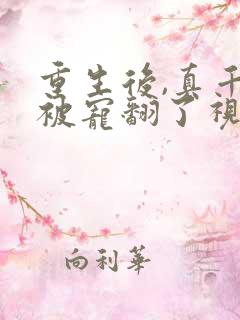 重生後,真千
被寵翻了視
向利華